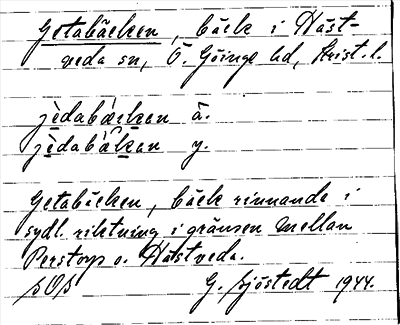 Getabäcken, bäck i Häst-
veda sn, Ö. Göinge hd, Krist. l.
jèdabækan ä.
jèdabækan y.
Getabäcken, bäck rinnande i
sydl. riktning i gränsen mellan
Perstorp o. Hästveda.
G. Sjöstedt 1944.